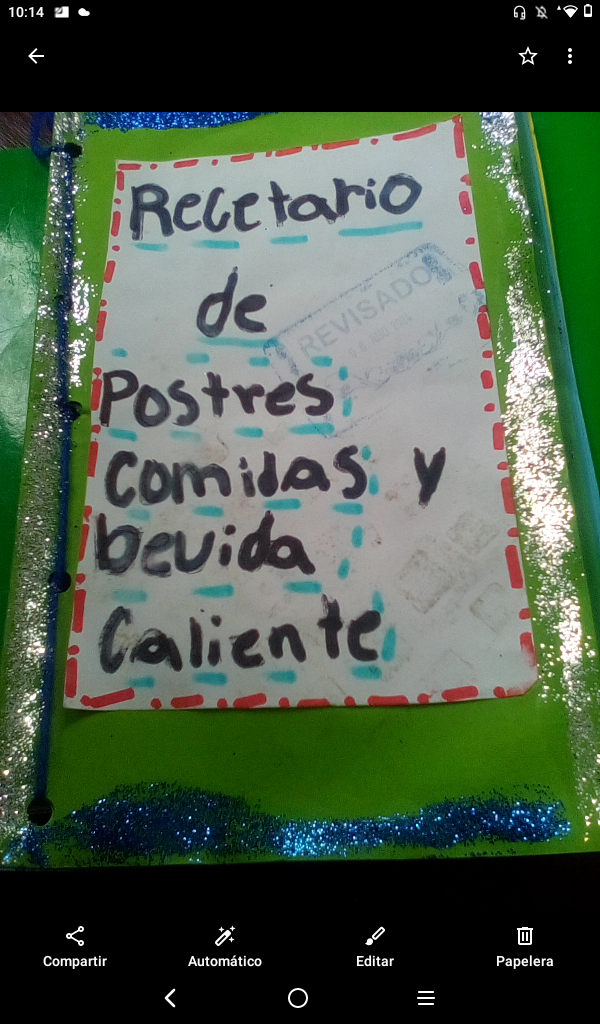 10:14
Recetario
de
REVISADO
Postres
comidas y
bevida
Caliente
Compartir
Automático
Editar
Papelera